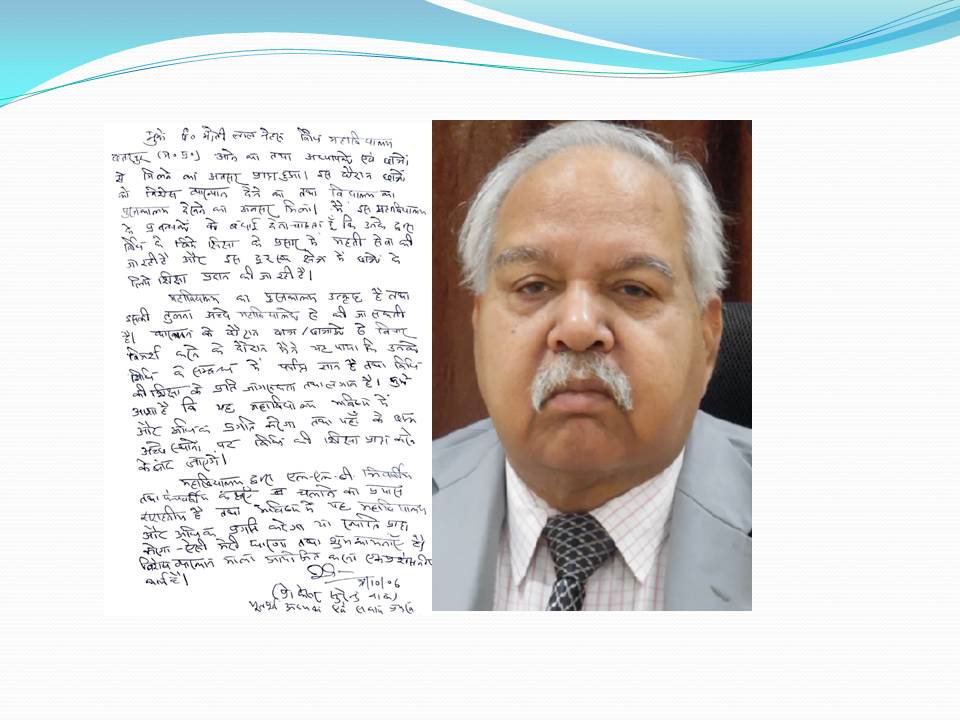 मुझे पं० मोती लाल नेहरू विधि महाविद्यालय
छतरपुर (म०प्र०) आने का तथा अध्यापकों एवं छात्रों
से मिलने का अवसर प्राप्त हुआ। इस दौरान छात्रों
को विशेष व्याख्यान देने का तथा विद्यालय का
पुस्तकालय देखने का अवसर मिला। मैं इस महाविद्यालय
के प्रबन्धकों को बधाई देना चाहता हूँ कि उनके द्वारा
विधि के लिये शिक्षा के प्रसार में महती सेवा की
जा रही है और इस क्षेत्र में छात्रों के
लिये शिक्षा प्रदान की जा रही है।
महाविद्यालय का पुस्तकालय उत्कृष्ट है तथा
इसकी तुलना अच्छे महाविद्यालयों से की जा सकती
है। व्याख्यान के दौरान छात्र/छात्राओं से विचार
विमर्श करने के दौरान मैंने यह पाया कि उनको
विधि के सम्बन्ध में पर्याप्त ज्ञान है तथा विधि
की शिक्षा के प्रति जागरूकता तथा लगाव है। मुझे
आशा है कि यह महाविद्यालय भविष्य में
और अधिक प्रगति करेगा तथा यहाँ के छात्र
अच्छे स्थानों पर विधि की शिक्षा प्राप्त करने
के बाद जाएंगे।
महाविद्यालय द्वारा एल-एल-बी त्रिवर्षीय
तथा पंचवर्षीय चलाने का प्रयास
सराहनीय है तथा भविष्य में यह महाविद्यालय
और अधिक प्रगति करेगा एवं ख्याति प्राप्त
करेगा - ऐसी मेरी कामना तथा शुभकामनाएँ हैं।
विशेष व्याख्यान माला आयोजित करना एक प्रशंसनीय
कार्य है।
/10/06